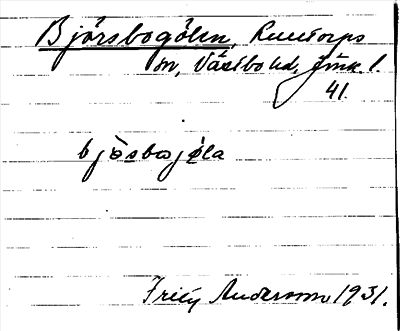 Björsbogölen, Reutorps
sn, Västbo hd, Jönk. l.
41.
bjösbojöla
Frity Andersson 1931.